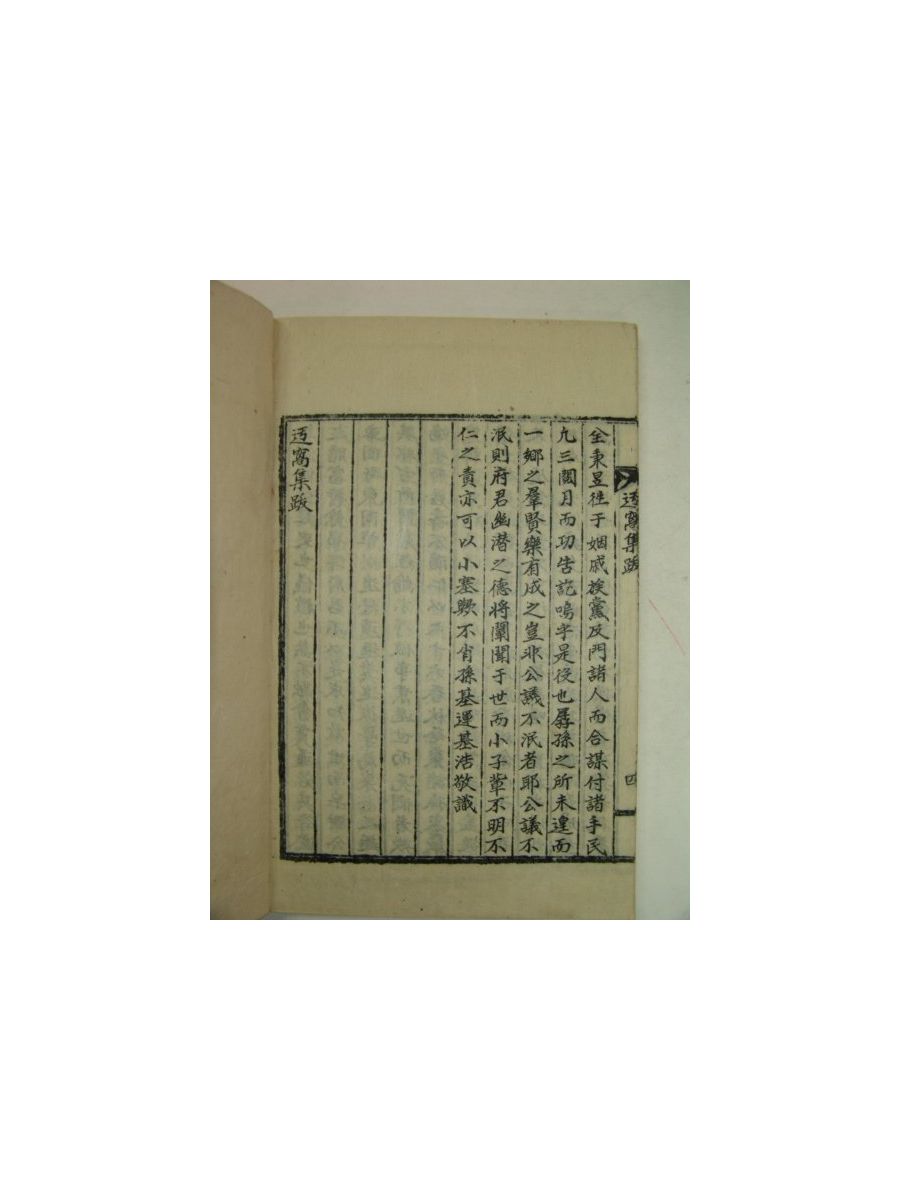 迃窩集跋
四
金秉昱徃于姻戚族黨及門諸人而合謀付諸手民
九三閱月而功告訖嗚乎是役也孱孫之所未遑而
一鄉之羣賢樂有成之豈非公議不泯者耶公議不
泯則府君幽潛之德將闡聞于世而小子輩不明不
仁之責亦可以小塞歟不肖孫基運基浩敬識
迃窩集跋